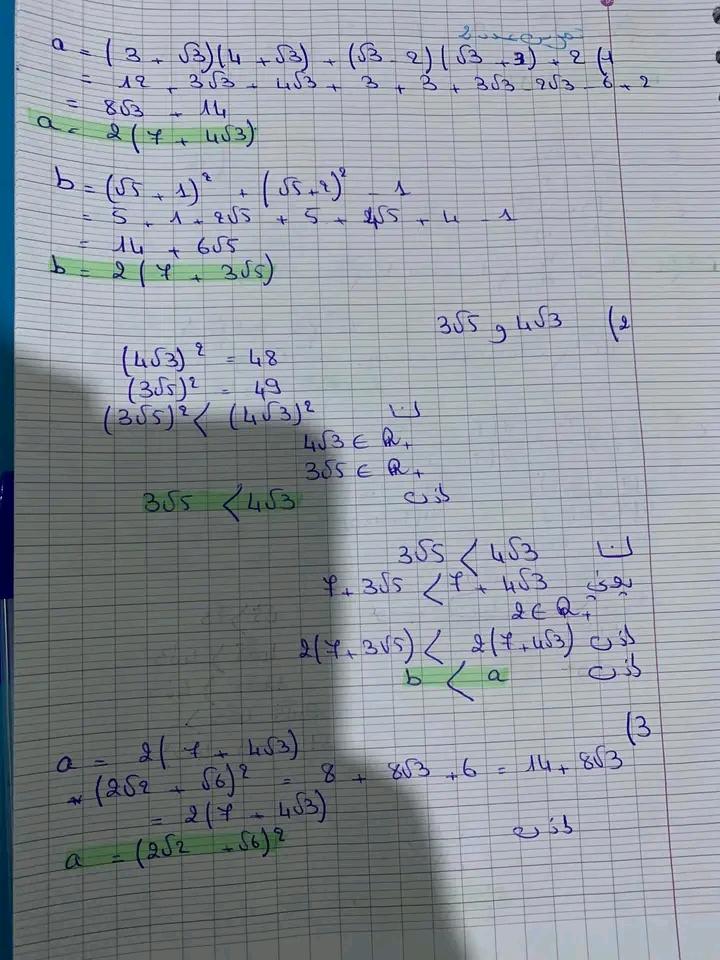 a = (3 + √3)(4 + √3) + (√3 - 2)(√3 + 3) + 2 (1
= 12 + 3√3 + 4√3 + 3 + 3 + 3√3 - 2√3 - 6 + 2
= 8√3 + 14
a = 2(7 + 4√3)
b = (√5 + 1)² + (√5 + 2)² - 1
= 5 + 1 + 2√5 + 5 + 4√5 + 4 - 1
= 14 + 6√5
b = 2(7 + 3√5)
3√5 و 4√3 (2
(4√3)² = 48
(3√5)² = 49
(3√5)² < (4√3)²
4√3 ∈ ℝ₊
3√5 ∈ ℝ₊
3√5 < 4√3 إذن
3√5 < 4√3
7 + 3√5 < 7 + 4√3
2 ∈ ℝ₊
2(7 + 3√5) < 2(7 + 4√3) إذن
b < a إذن
(3
a = 2(7 + 4√3)
* (2√2 + √6)² = 8 + 8√3 + 6 = 14 + 8√3
= 2(7 + 4√3)
a = (2√2 + √6)² إذن